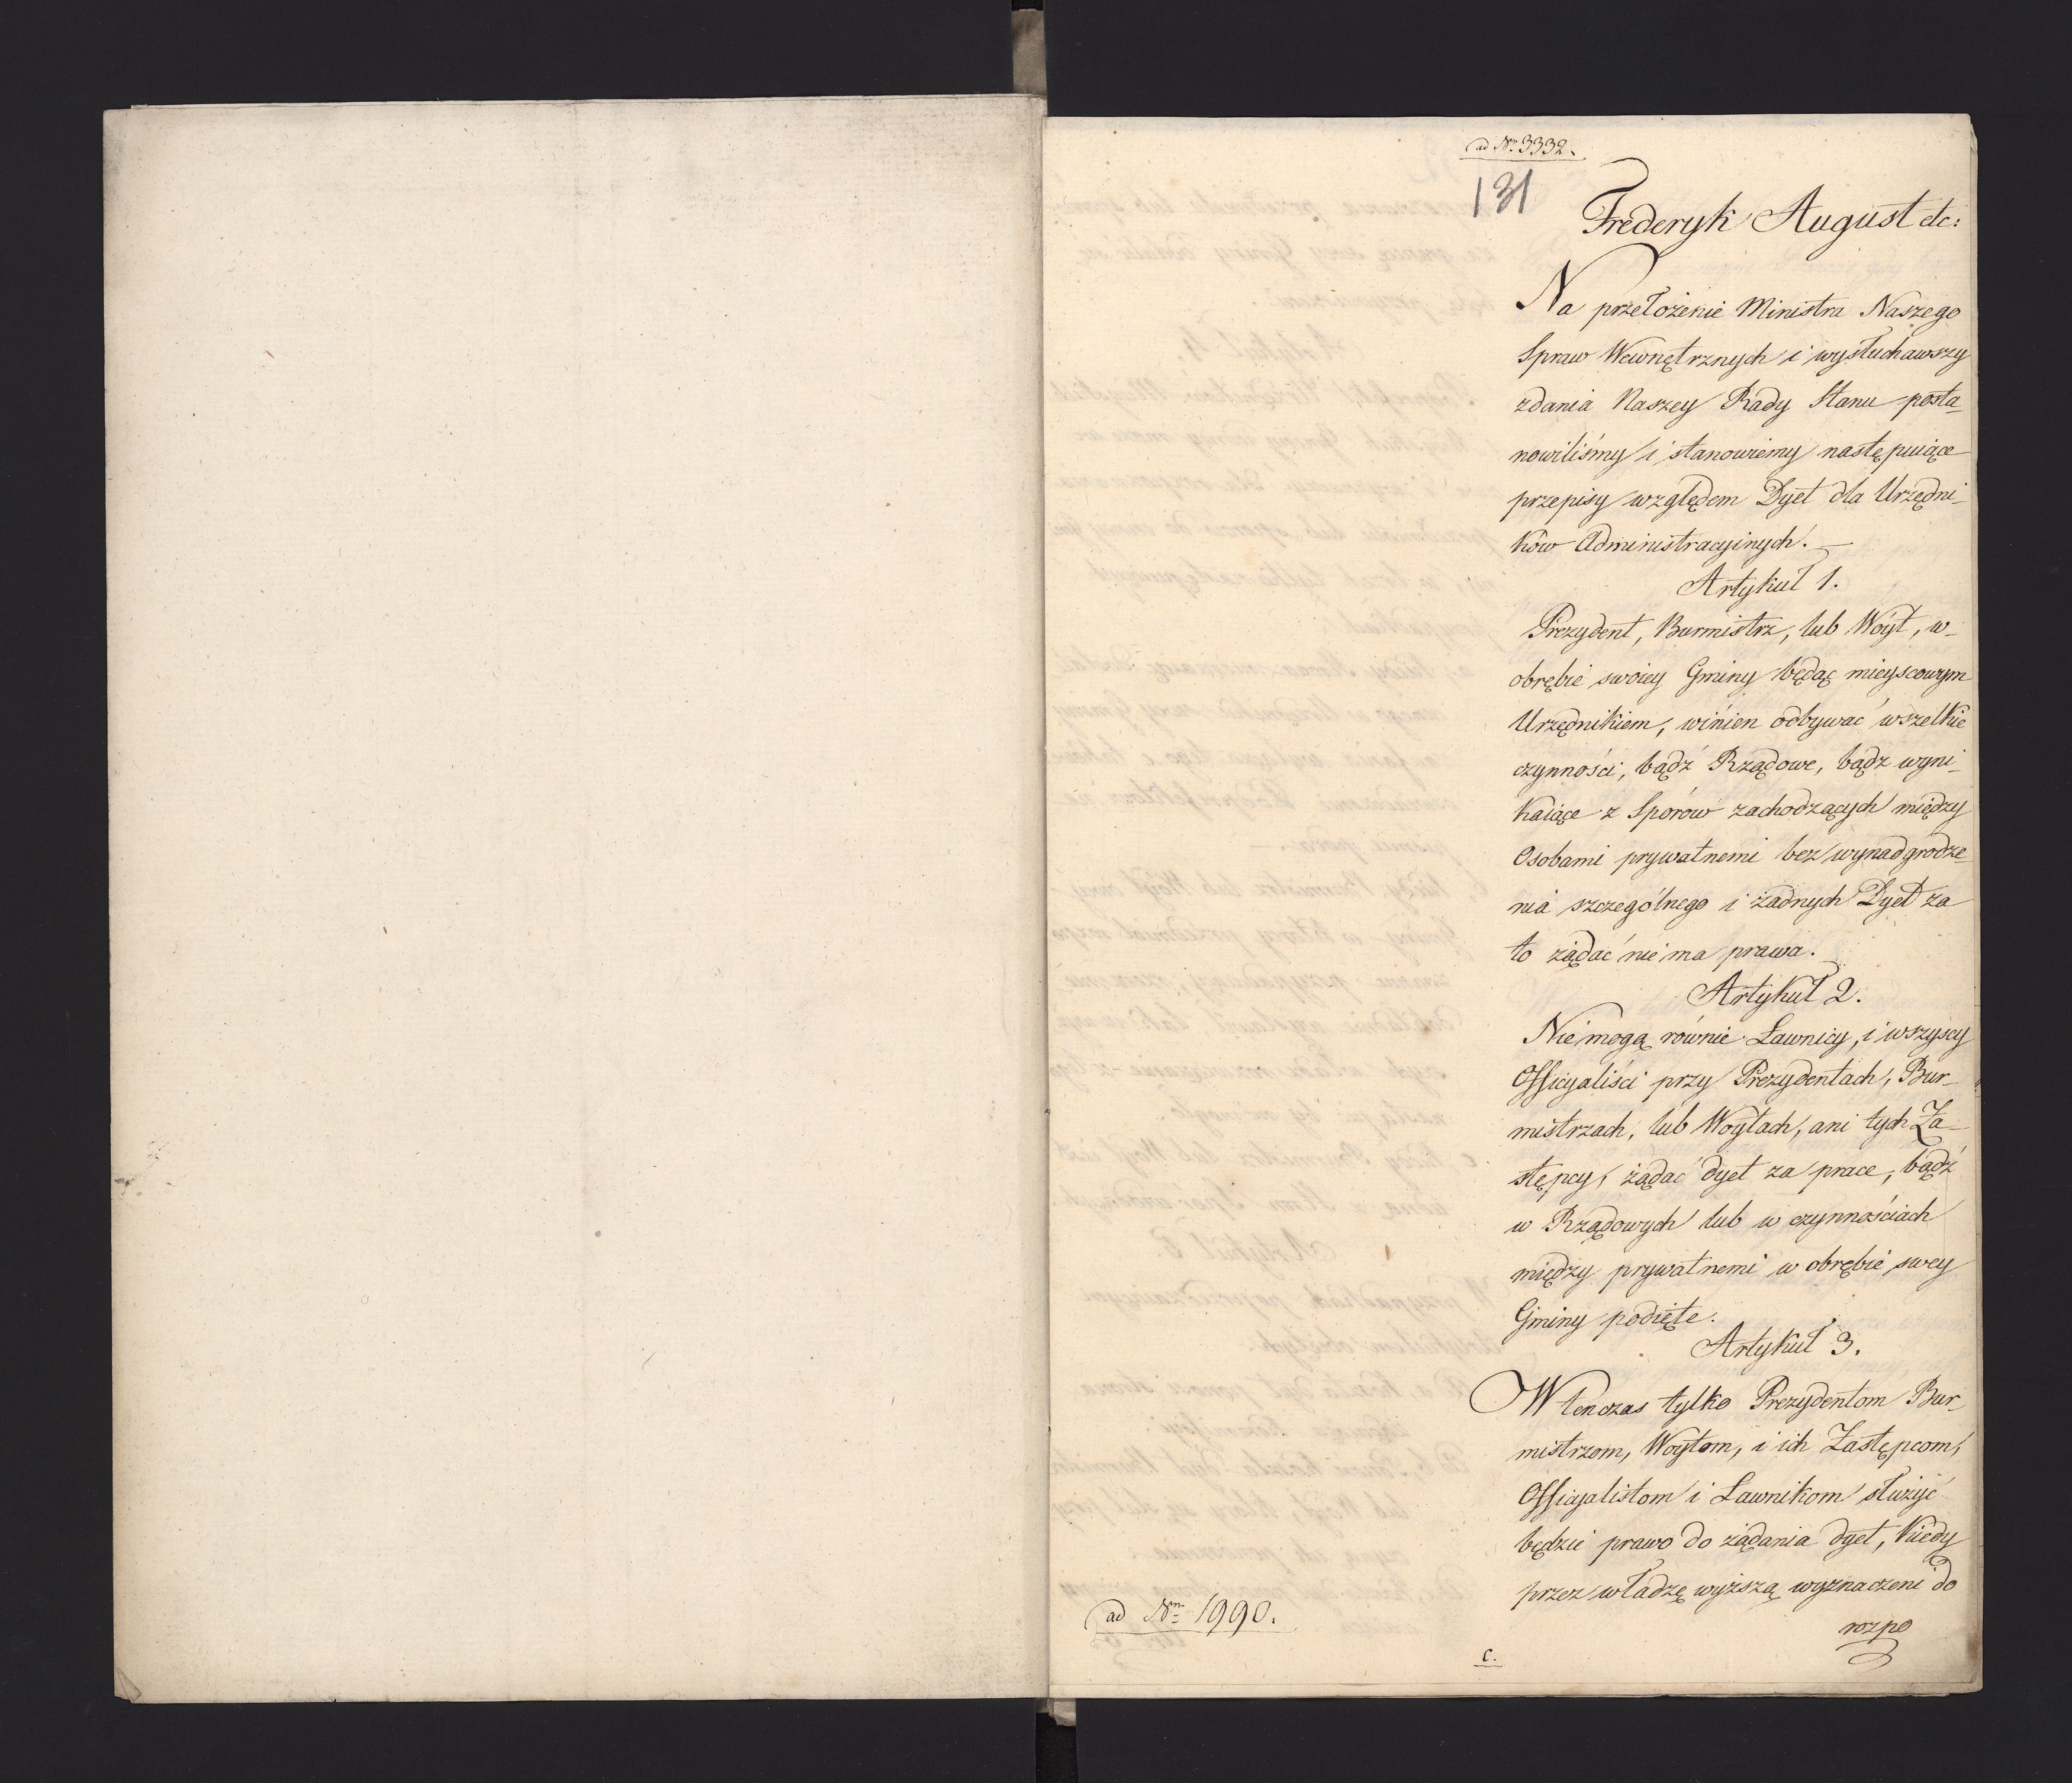 ad Nr 3332.
131
Frederyk August etc:
Na przełożenie Ministra Naszego
Spraw Wewnętrznych i wysłuchawszy
zdania Naszey Rady Stanu posta-
nowiliśmy i stanowiemy następuiące
przepisy względem Dyet dla Urzędni-
ków Administracyinych. —
Artykuł 1.
Prezydent, Burmistrz, lub Woyt, w-
obrębie swoiey Gminy będąc mieyscowym
Urzędnikiem, winien odbywać wszelkie
czynności, bądź Rządowe, bądz wyni-
kaiące z Sporów zachodzących między
Osobami prywatnemi bez wynadgrodze-
nia szczególnego i żadnych Dyet za
to żądać nie ma prawa.
Artykuł 2.
Nie mogą równie Ławnicy, i wszyscy
Officyaliści przy Prezydentach, Bur-
mistrzach, lub Woytach, ani tych Za-
stępcy, żądać dyet za prace, bądź
w Rządowych lub w czynnościach
między prywatnemi w obrębie swey
Gminy podięte.
Artykuł 3.
W tenczas tylko Prezydentom Bur-
mistrzom, Woytom, i ich Zastępcom,
Officyalistom i Ławnikom służyć
będzie prawo do żądania dyet, kiedy
przez władzę wyższą wyznaczeni do
rozpo
ad Nrm 1990.
C.